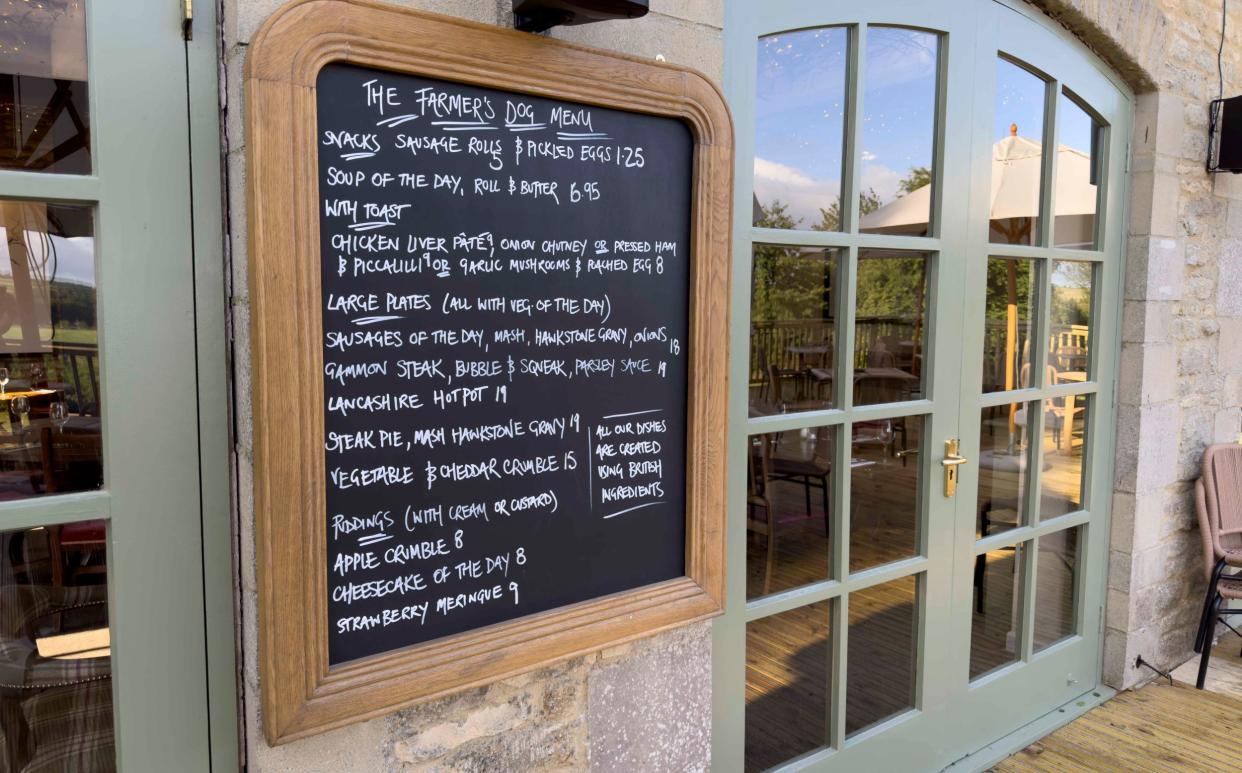 THE FARMER'S DOG MENU
SNACKS SAUSAGE ROLLS 5 & PICKLED EGGS 1.25
SOUP OF THE DAY, ROLL & BUTTER 6.95
WITH TOAST
CHICKEN LIVER PÂTÉ, ONION CHUTNEY OR PRESSED HAM
& PICCALILLI OR GARLIC MUSHROOMS & POACHED EGG 8
LARGE PLATES (ALL WITH VEG OF THE DAY)
SAUSAGES OF THE DAY, MASH, HAWKSTONE GRAVY, ONIONS 18
GAMMON STEAK, BUBBLE & SQUEAK, PARSLEY SAUCE 19
LANCASHIRE HOTPOT 19
STEAK PIE, MASH HAWKSTONE GRAVY 19
VEGETABLE & CHEDDAR CRUMBLE 15
ALL OUR DISHES
ARE CREATED
USING BRITISH
INGREDIENTS
PUDDINGS (WITH CREAM OR CUSTARD)
APPLE CRUMBLE 8
CHEESECAKE OF THE DAY 8
STRAWBERRY MERINGUE 9